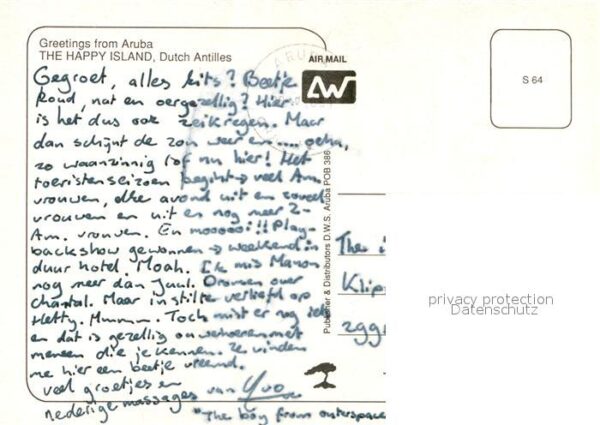 Greetings from Aruba
THE HAPPY ISLAND, Dutch Antilles
AIR MAIL
ARUBA
S 64
Gegroet, alles kits? Beetje
koud, nat en oergezellig? Hier
is het dus ook zeikregen. Maar
dan schijnt de zon weer en .... ocha,
zo waanzinnig tof nu hier! Het
toeristenseizoen begint → veel Am.
vrouwen, elke avond uit en zoveel
vrouwen en uit en nog meer Z-
Am. vrouwen. En moooooi!! Play-
backshow gewonnen → weekend in
duur hotel. Moah. Ik mis Manon
nog meer dan jaul. Dromen over
chantal. Maar in stilte verliefd op
Hetty. Mmmm. Toch mist er nog iets
en dat is gezellig met
mensen die je kennen. Ze vinden
me hier een beetje vreemd.
veel groetjes en
nederige massages van Yvo
"The boy from outerspace
Publisher & Distributors D.W.S. Aruba POB 386
Theo
Klip
2991
privacy protection
Datenschutz